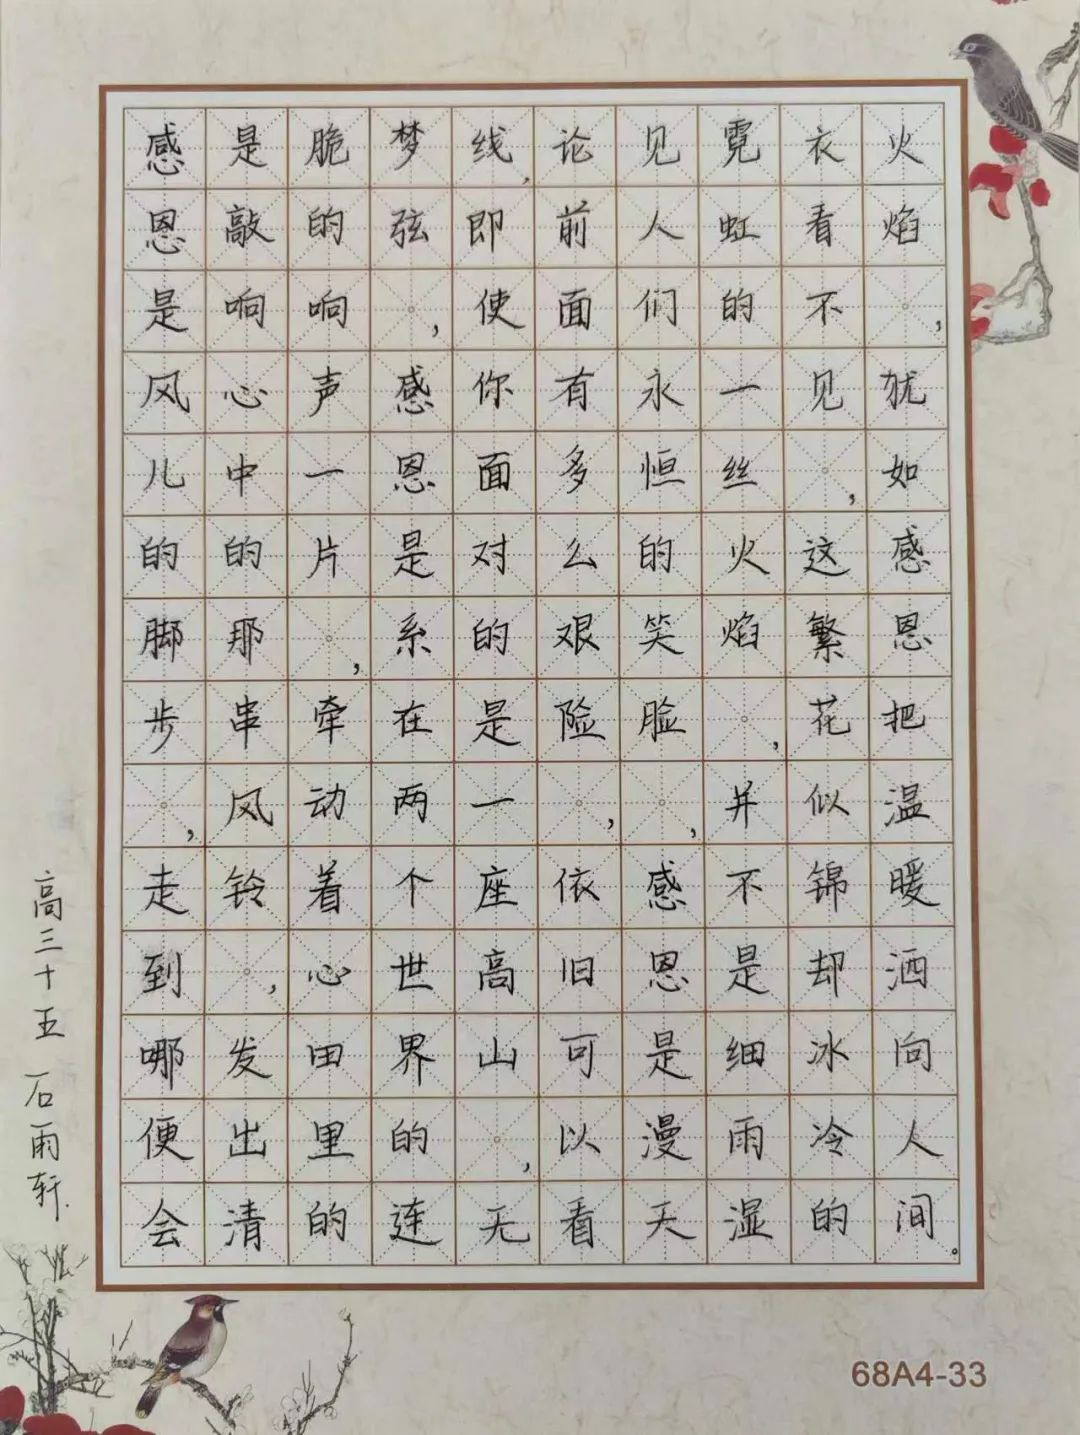 感恩是风儿的脚步,走到哪便会
是敲响心中的那串风铃,发出清
脆的响声一片,牵动着心田里的
梦弦,感恩是系在两个世界的连
线,即使你面对的是一座高山,无
论前面有多么艰险,依旧可以看
见人们永恒的笑脸,感恩是漫天
霓虹的一丝火焰,并不是细雨湿
衣看不见,这繁花似锦却冰冷的
火焰,犹如感恩把温暖洒向人间。
高三十五 石雨轩.
68A4-33